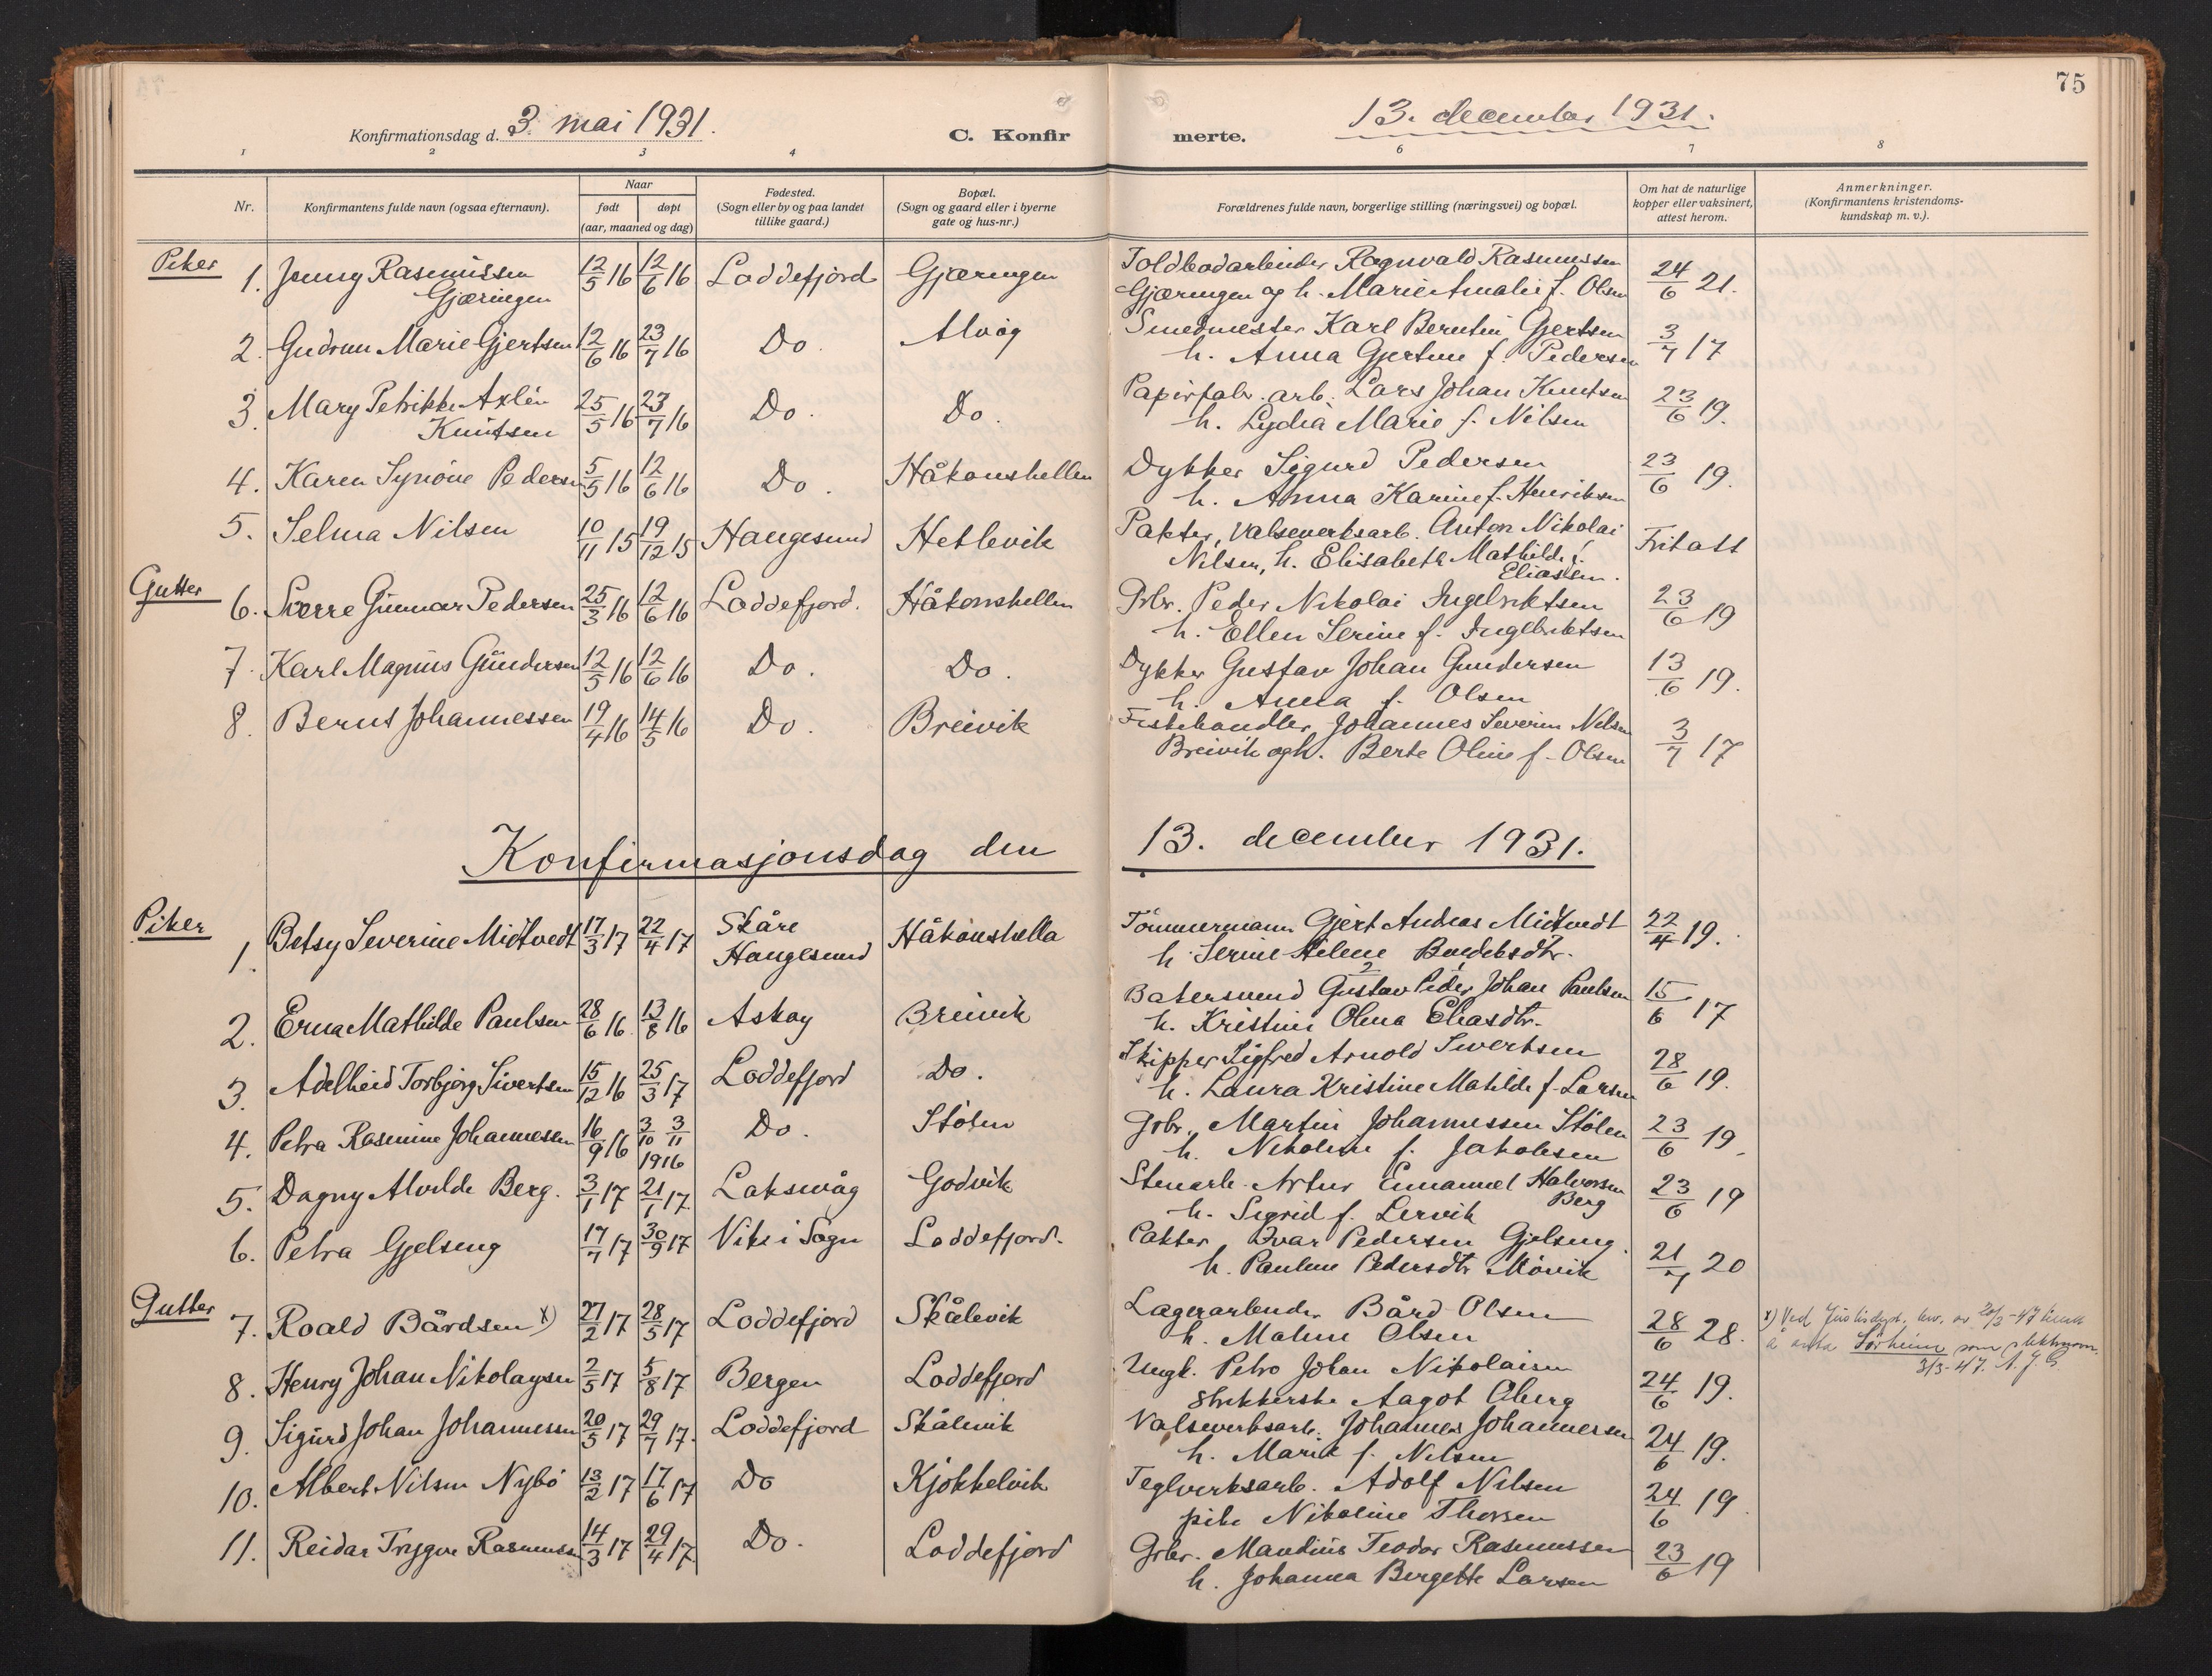 75
Konfirmationsdag d. 3. mai 1931. C. Konfirmerte. 13. december 1931.
1 2 3 4 6 7 8
Nr. Konfirmantens fulde navn (ogsaa efternavn). Naar født døpt (aar, maaned og dag) Fødested. (Sogn eller by og paa landet tillike gaard.) Bopæl. (Sogn og gaard eller i byerne gate og hus-nr.) Forældrenes fulde navn, borgerlige stilling (næringsvei) og bopæl. Om hat de naturlige kopper eller vaksinert, attest herom. Anmerkninger. (Konfirmantens kristendomskundskap m. v.).
Piker
1. Jenny Rasmussen Gjæringen 12/5 16 12/6 16 Loddefjord Gjæringen Toldbodarbeider Ragnvald Rasmussen
Gjæringen og h. Marie Amalie f. Olsen 24/6 21.
2. Gudrun Marie Gjertsen 12/6 16 23/7 16 Do. Alvåg Smedmester Karl Berntin Gjertsen
h. Anna Gjertine f. Pedersen 3/7 17
3. Mary Petrikke Axlén Knutsen 25/5 16 23/7 16 Do. Do. Papirfabr. arb. Lars Johan Knutsen
h. Lydia Marie f. Nilsen 23/6 19.
4. Karen Synøve Pedersen 5/5 16 12/6 16 Do. Håkonshellen Dykker Sigurd Pedersen
h. Anna Karine f. Henriksen 23/6 19.
5. Selma Nilsen 10/11 15 19/12 15 Haugesund Hetlevik Pakter, Valseverksarb. Anton Nikolai
Nilsen, h. Elisabeth Mathilde f. Eliassen. Fritatt
Gutter
6. Sverre Gunnar Pedersen 25/3 16 12/6 16 Loddefjord. Håkonshellen Grbr. Peder Nikolai Ingebriktsen
h. Ellen Serine f. Ingebriktsen 23/6 19
7. Karl Magnus Gundersen 12/5 16 12/6 16 Do. Do. Dykker Gustav Johan Gundersen
h. Anna f. Olsen 13/6 19.
8. Bernt Johannessen 19/4 16 14/5 16 Do. Breivik Fiskehandler Johannes Severin Nilsen
Breivik og h. Berte Oline f. Olsen 3/7 17
Konfirmasjonsdag den 13. december 1931.
Piker
1. Betsy Severine Midtvedt 17/3 17 22/4 17 Skåre Haugesund Håkonshella Tömmermann Gjert Andreas Midtvedt
h. Serine Helene 22/4 19.
2. Erna Mathilde Paulsen 28/6 16. 13/8 16 Askøy Breivik Bakersvend Gustav Peder Johan Paulsen
h. Kristine Olena Eliasdtr. 15/6 17
3. Adelheid Torbjørg Sivertsen 15/12 16 25/3 17 Loddefjord Do. Skipper Sigfred Arnold Sivertsen
h. Laura Kristine Matilde f. Larsen 28/6 19.
4. Petra Rasmine Johannesen 16/9 16 3/10 3/11 1916 Do. Stölen Grbr. Martin Johannessen Stölen
h. Nikoline f. Jakobsen 23/6 19.
5. Dagny Alvilde Berg. 3/1 17 21/1 17. Laksevåg Godvik Stenarb. Artur Emanuel Halvorsen Berg
h. Sigrid f. Lervik 23/6 19
6. Petra Gjelseng 17/7 17 30/9 17 Vik i Sogn Loddefjord. Pakter Ivar Pedersen Gjelseng.
h. Pauline Pedersdtr Mövik 21/7 20
Gutter
7. Roald Bårdsen x) 27/2 17 28/5 17 Loddefjord Skålevik Lagerarbeider Bård Olsen
h. Malene Olsen 28/6 28. x) Ved Justisdept. bev. av 20/2-47
å anta Sörheim som slektsnavn.
3/3-47. A. J. G.
8. Henry Johan Nikolaysen 2/5 17 5/8 17 Bergen Loddefjord Ungk. Petro Johan Nikolaisen
Strikkerske Aagot Åberg 24/6 19.
9. Sigurd Johan Johannessen 20/5 17 29/7 17. Loddefjord Skålevik Valseverksarb. Johannes Johannessen
h. Marie f. Nilsen 24/6 19.
10. Albert Nilsen Nybö 13/2 17 17/6 17 Do Kjøkkelvik Teglverksarb. Adolf Nilsen
pike Nikoline Thorsen 24/6 19.
11. Reidar Trygve Rasmussen 14/3 17 29/4 17. Do. Loddefjord Grbr. Mandius Teodor Rasmussen
h. Johanna Bergette Larsen 23/6 19